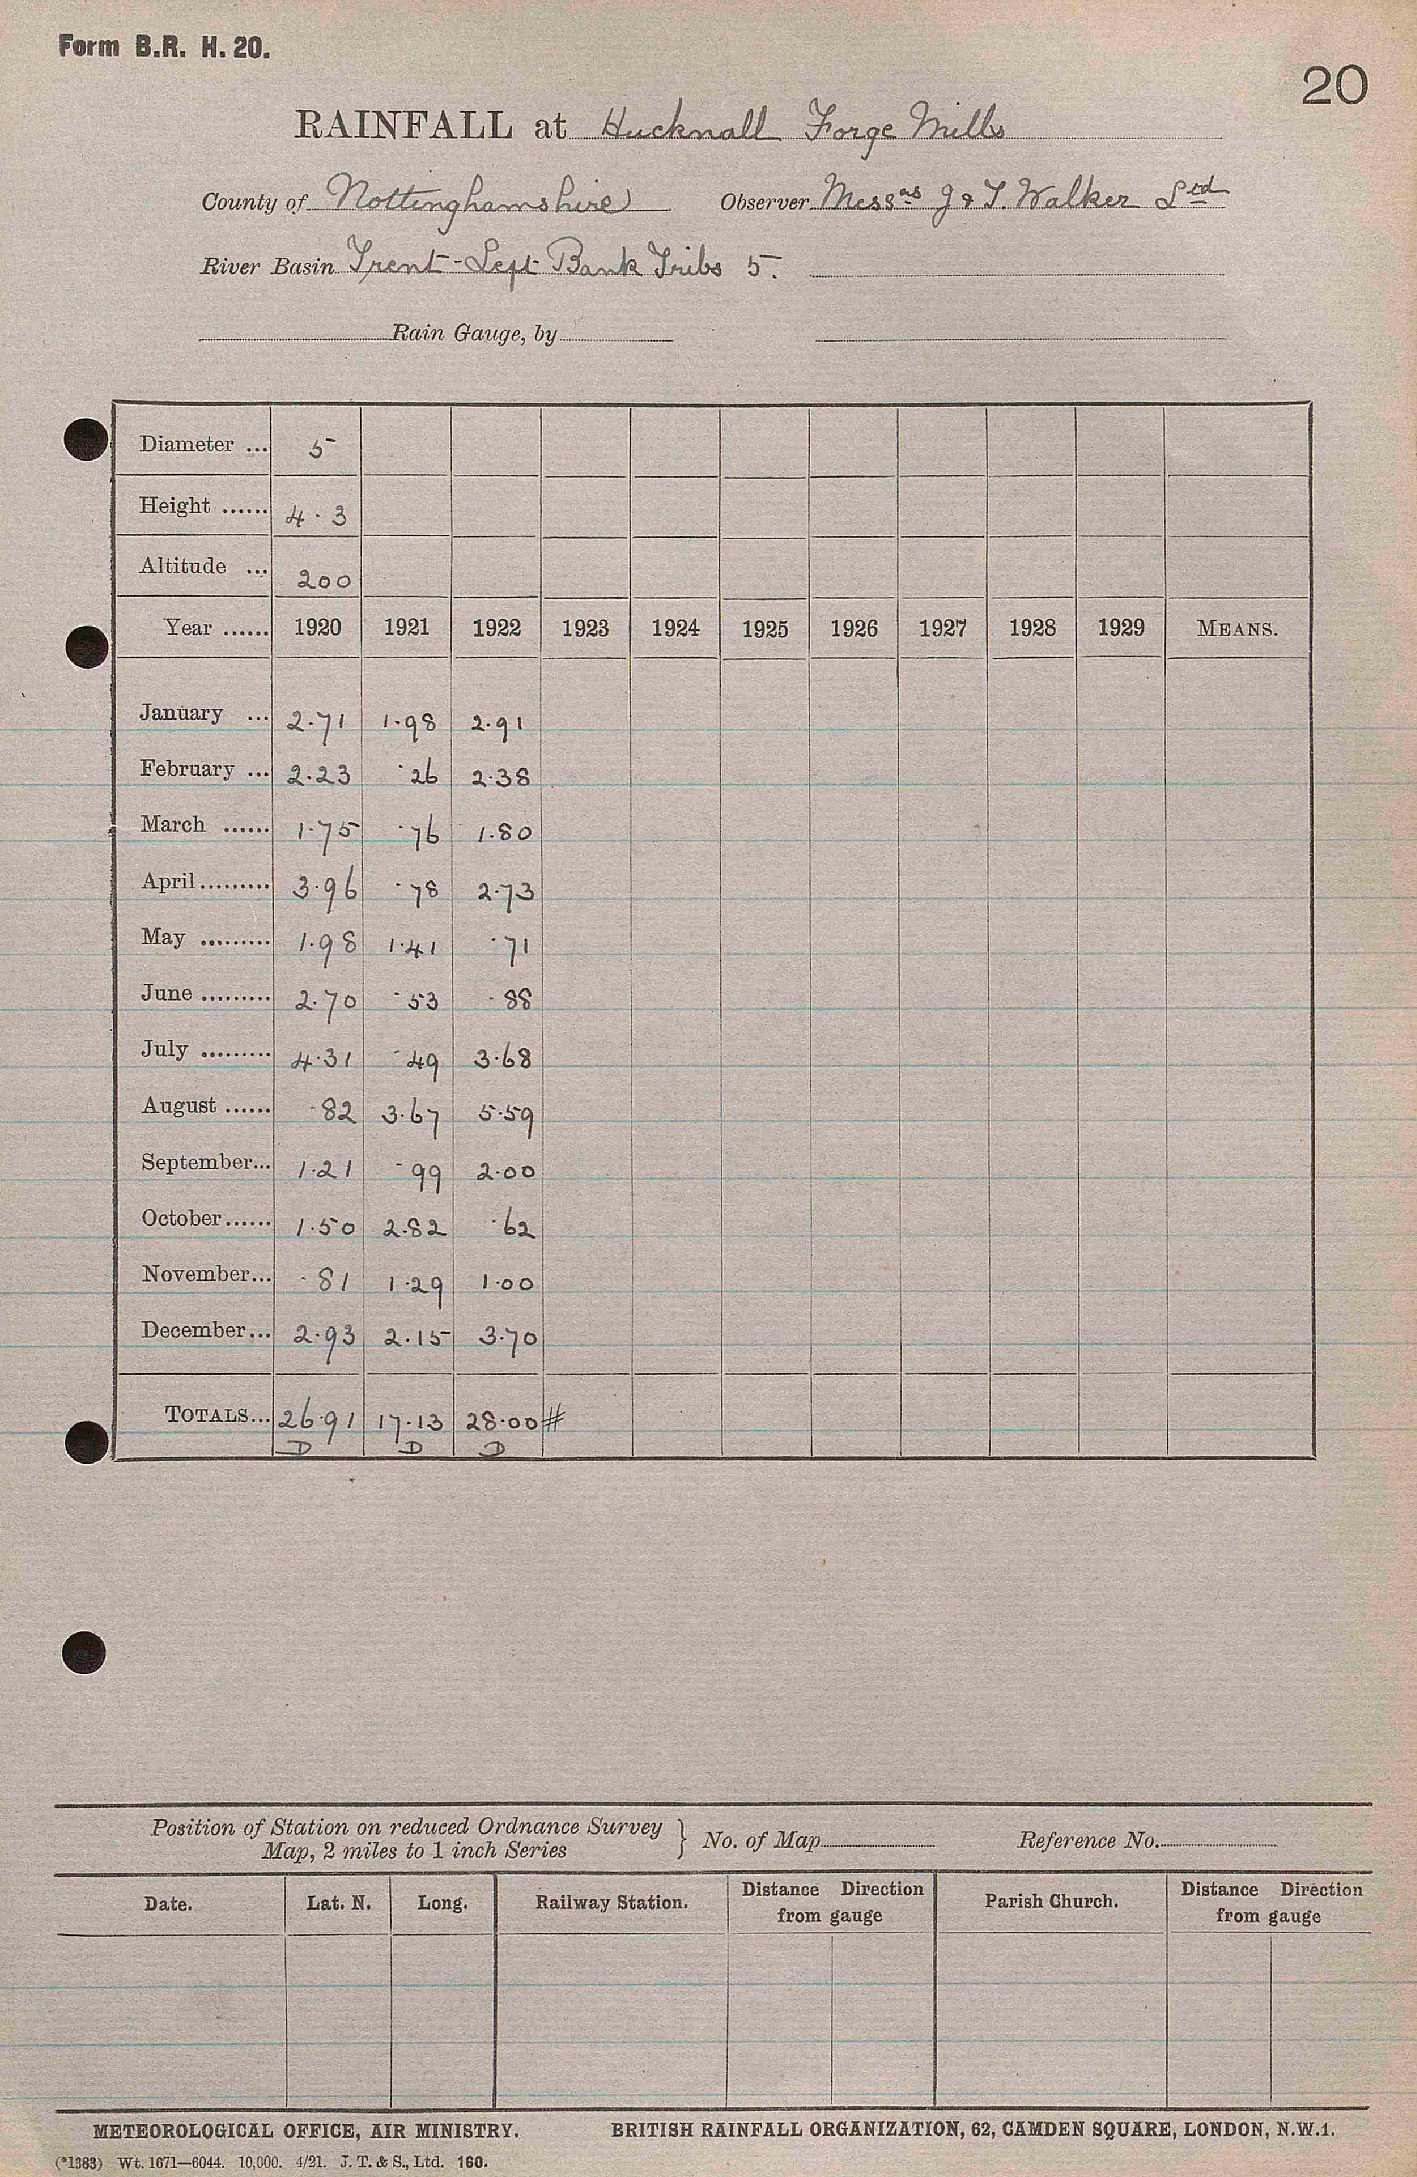 Form B.R. H. 20.
20
RAINFALL at Hucknall Forge Mills
County of Nottinghamshire Observer Messrs J & T. Walker Ltd
River Basin Trent - Left Bank Tribs 5.
Rain Gauge, by
Diameter ... 5
Height ...... 4.3
Altitude ... 200
Year ...... 1920 1921 1922 1923 1924 1925 1926 1927 1928 1929 MEANS.
January ... 2.71 1.98 2.91
February ... 2.23 .26 2.38
March ...... 1.75 .76 1.80
April......... 3.96 .78 2.73
May ......... 1.98 1.41 .71
June ......... 2.70 .53 .88
July ......... 4.31 .49 3.68
August ...... .82 3.67 5.59
September... 1.21 .99 2.00
October...... 1.50 2.82 .62
November... .81 1.29 1.00
December... 2.93 2.15 3.70
TOTALS... 26.91 17.13 28.00 #
D D D
Position of Station on reduced Ordnance Survey
Map, 2 miles to 1 inch Series } No. of Map Reference No.
Date. Lat. N. Long. Railway Station. Distance Direction from gauge Parish Church. Distance Direction from gauge
METEOROLOGICAL OFFICE, AIR MINISTRY. BRITISH RAINFALL ORGANIZATION, 62, CAMDEN SQUARE, LONDON, N.W.1.
(*1383) Wt. 1671—6044. 10,000. 4/21. J. T. & S., Ltd. 160.